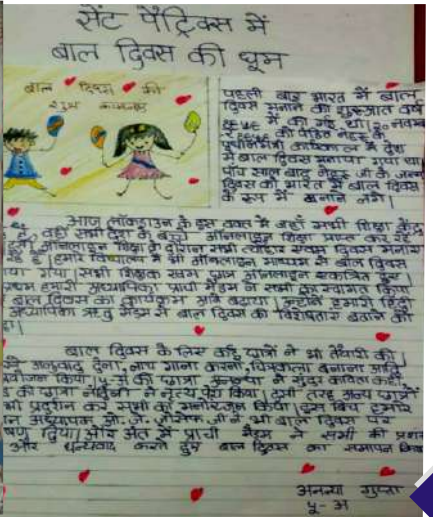 सेंट पैट्रिक्स में
बाल दिवस की धूम
बाल दिवस की
शुभ कामनाएं
पहली बार भारत में बाल
दिवस मनाने की शुरुआत वर्ष
में की गई थी।
की पंडित नेहरू के
प्रधानमंत्री कार्यकाल में देश
में बाल दिवस मनाया गया था।
पाँच साल बाद नेहरू जी के जन्म
दिवस को भारत में बाल दिवस
के रूप में मनाने लगे।
आज लॉकडाउन के इस वक्त में जहाँ सभी शिक्षा केंद्र
वहाँ सभी देश के बच्चे ऑनलाइन शिक्षा प्राप्त कर रहे
ऑनलाइन शिक्षा के दौरान सभी त्योहार दिवस मना रहे
हमारे विद्यालय में भी ऑनलाइन माध्यम से बाल दिवस
या गया। सभी शिक्षक छात्र ऑनलाइन एकत्रित हुए।
प्रथम हमारी अध्यापिका प्राची मैडम ने सभी का स्वागत किया
बाल दिवस का कार्यक्रम आगे बढ़ाया। उन्होंने हमारी हिंदी
अध्यापिका ऋतु मैडम से बाल दिवस की विशेषताएं बताने को
हा।
बाल दिवस के लिए कई छात्रों ने भी तैयारी की।
देना, नाच गाना करना, चित्रकला बनाना आदि
योजन किया। ५-अ की छात्रा अनन्या ने सुंदर कविता कही,
की छात्रा ने नृत्य पेश किया। इसी तरह अन्य छात्रों
भी प्रदर्शन कर सभी का मनोरंजन किया। इस बीच हमारे
अध्यापक जी ने भी बाल दिवस पर
षण दिया। और अंत में प्राची मैडम ने सभी की प्रशंसा
और धन्यवाद करते हुए बाल दिवस का समापन किया
अनन्या गुप्ता
५-अ